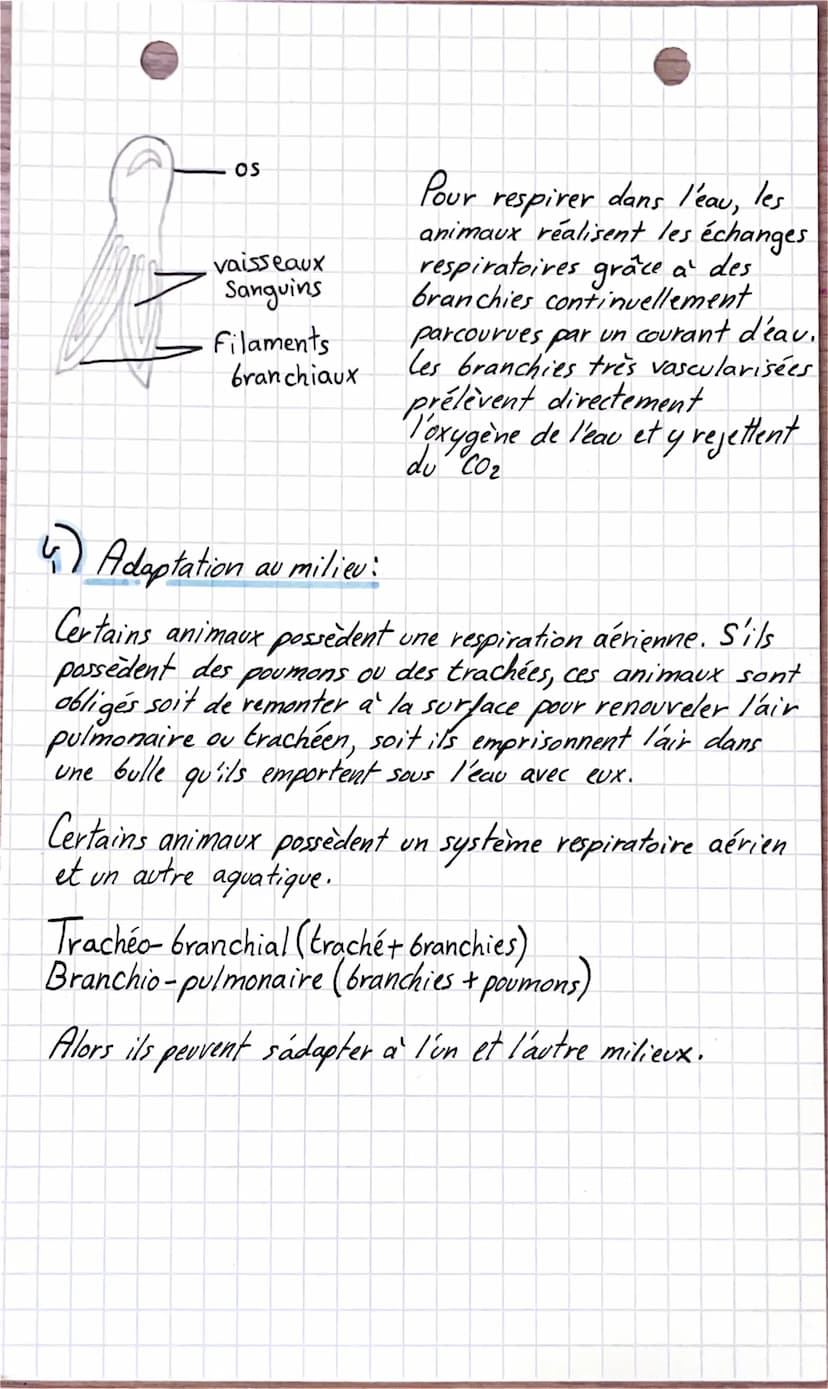 os
vaisseaux
Sanguins
Filaments
branchiaux
Pour respirer dans l'eau, les
animaux réalisent les échanges
respiratoires grâce à des
branchies continuellement
parcourues par un courant d'eau.
Les branchies très vascularisées
prélèvent directement
l'oxygène de l'eau et y rejettent
du CO2
4) Adaptation au milieu:
Certains animaux possèdent une respiration aérienne. S'ils
possèdent des poumons ou des trachées, ces animaux sont
obligés soit de remonter à la surface pour renouveler l'air
pulmonaire ou trachéen, soit ils emprisonnent l'air dans
une bulle qu'ils emportent sous l'eau avec eux.
Certains animaux possèdent un système respiratoire aérien
et un autre aquatique.
Trachéo-branchial (traché+ branchies)
Branchio-pulmonaire (branchies + poumons)
Alors ils peuvent s'adapter à l'un et l'autre milieux.